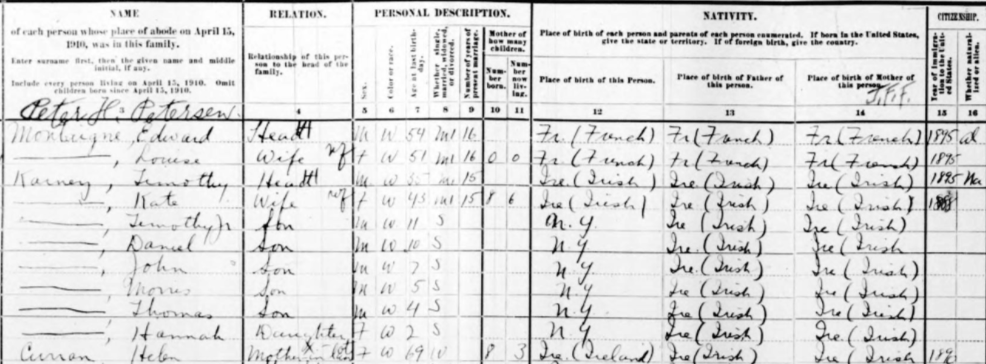 NAME RELATION. PERSONAL DESCRIPTION. NATIVITY. CITIZENSHIP.
of each person whose place of abode on April 15, 1910, was in this family.
Enter surname first, then the given name and middle initial, if any.
Include every person living on April 15, 1910. Omit children born since April 15, 1910.
Relationship of this person to the head of the family.
Sex.
Color or race.
Age at last birthday.
Whether single, married, widowed, or divorced.
Number of years of present marriage.
Mother of how many children.
Number born.
Number now living.
Place of birth of each person and parents of each person enumerated. If born in the United States, give the state or territory. If of foreign birth, give the country.
Place of birth of this Person.
Place of birth of Father of this person.
Place of birth of Mother of this person.
Year of immigration to the United States.
Whether naturalized or alien.
3 4 5 6 7 8 9 10 11 12 13 14 15 16
Peter H. Petersen
Montaigne, Edward Head M W 54 M1 16 Fr. (French) Fr (French) Fr (French) 1895 al
——, Louise Wife F W 51 M1 16 0 0 Fr (French) Fr (French) Fr (French) 1895
Karney, Timothy Head M W M1 15 Ire. (Irish) Ire (Irish) Ire (Irish) 1885 Na
——, Kate Wife F W 43 M1 15 8 6 Ire (Irish) Ire (Irish) Ire (Irish)
——, Timothy Jr Son M W 11 S N.Y. Ire (Irish) Ire (Irish)
——, Daniel Son M W 10 S N.Y Ire. (Irish) Ire (Irish)
——, John Son M W 7 S N.Y. Ire. (Irish) Ire (Irish)
——, Morris Son M W 5 S N.Y Ire (Irish) Ire (Irish)
——, Thomas Son M W 4 S N.Y Ire (Irish) Ire (Irish)
——, Hannah Daughter F W 2 S N.Y Ire (Irish) Ire. (Irish)
Curran, Helen Mother in law F W 69 W 8 3 Ire. (Ireland) Ire (Irish) Ire (Irish)